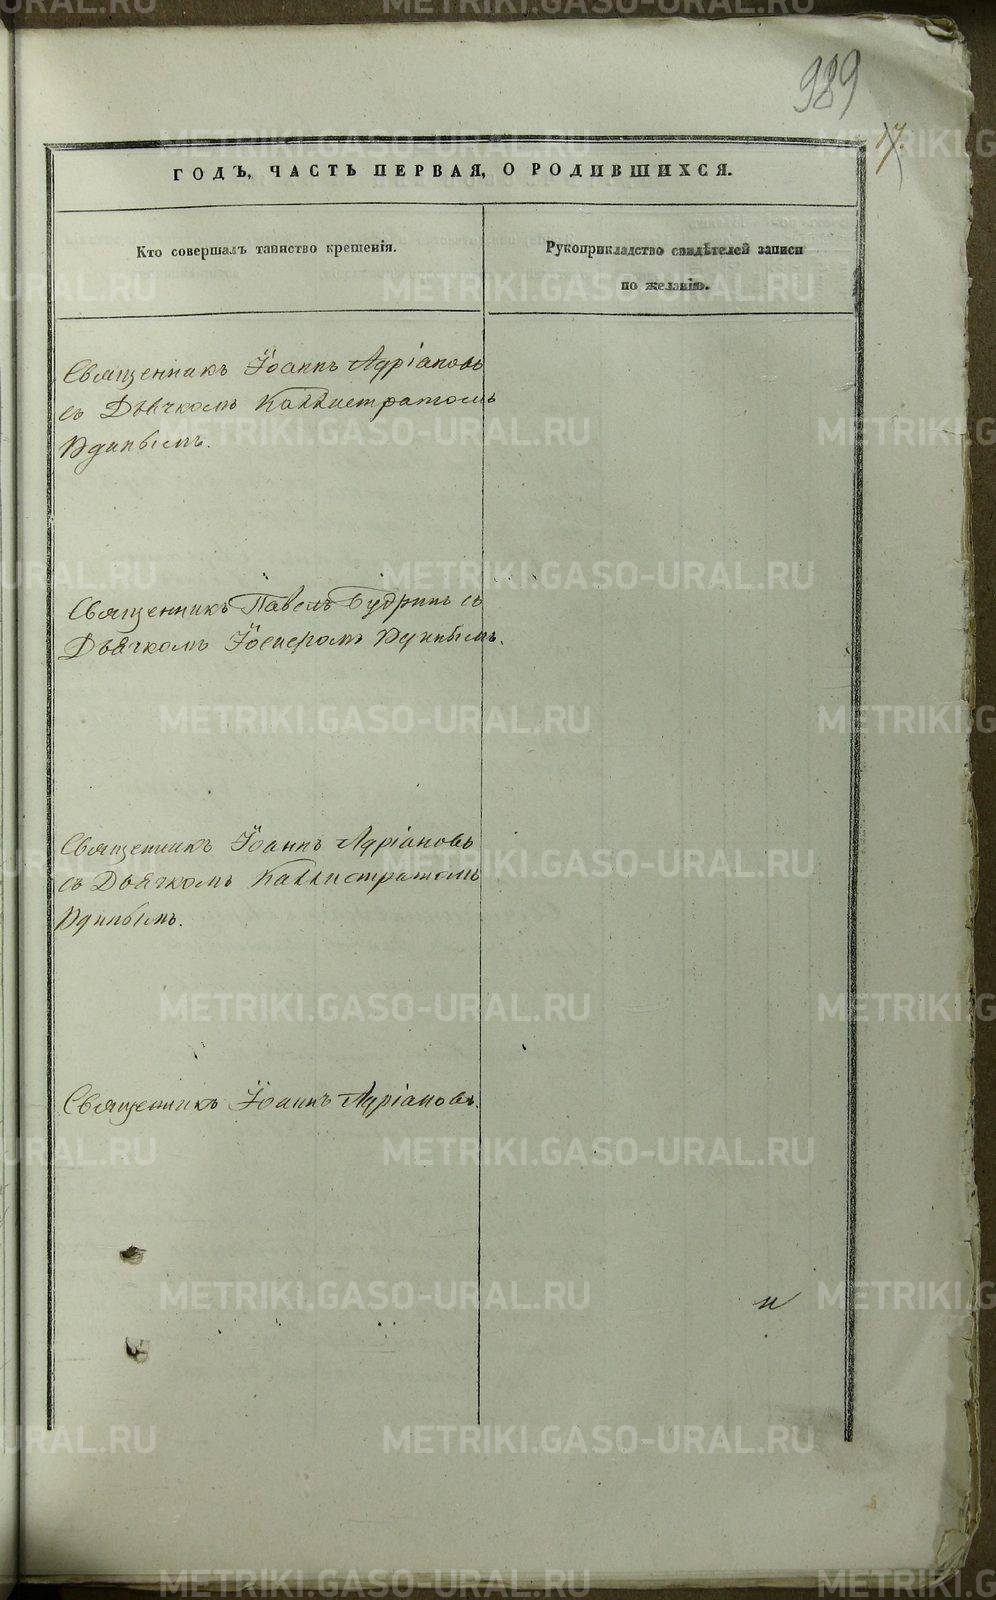 989
17
ГОДЪ, ЧАСТЬ ПЕРВАЯ, О РОДИВШИХСЯ.
Кто совершалъ таинство крещенія.
Рукоприкладство свидѣтелей записи
по желанію.
Священникъ Іоаннъ Адріановъ
съ Дьячкомъ Каллистратомъ
Удинымъ.
Священникъ Павелъ Будринъ съ
Дьячкомъ Іосифомъ Удинымъ.
Священникъ Іоаннъ Адріановъ
съ Дьячкомъ Каллистратомъ
Удинымъ.
Священникъ Іоаннъ Адріановъ.
и
METRIKI.GASO-URAL.RU